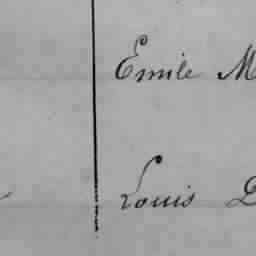 Emile M
Louis